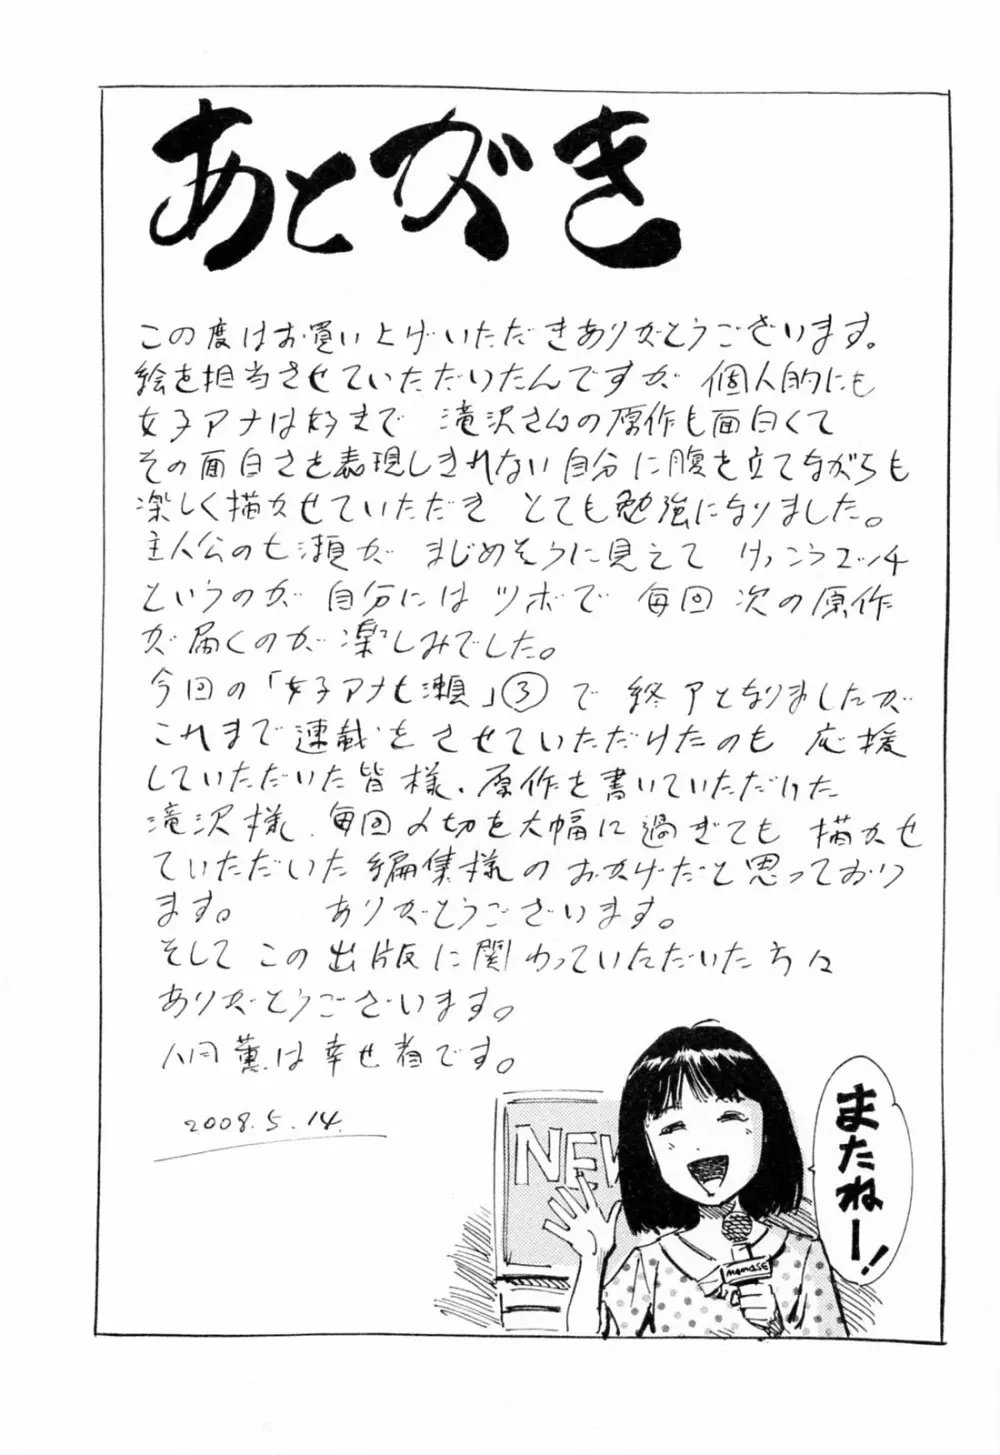 あとがき
この度はお買い上げいただきありがとうございます。
絵を担当させていただいたんですが 個人的にも
女子アナは好きで 滝沢さんの原作も面白くて
その面白さを表現しきれない自分に腹を立てながらも
楽しく描かせていただき とても勉強になりました。
主人公の七瀬が まじめそうに見えて けっこうエッチ
というのが 自分には ツボで 毎回 次の原作
が届くのが楽しみでした。
今回の「女子アナ七瀬」③で 終了となりましたが
これまで連載をさせていただけたのも 応援
していただいた皆様、原作を書いていただけた
滝沢様、毎回〆切を大幅に過ぎても 描かせ
ていただいた編集様のおかげだと思っており
ます。 ありがとうございます。
そして この出版に関わっていただいた方々
ありがとうございます。
八月薫は幸せ者です。
2008.5.14.
NEW
MamaSE
またねー!